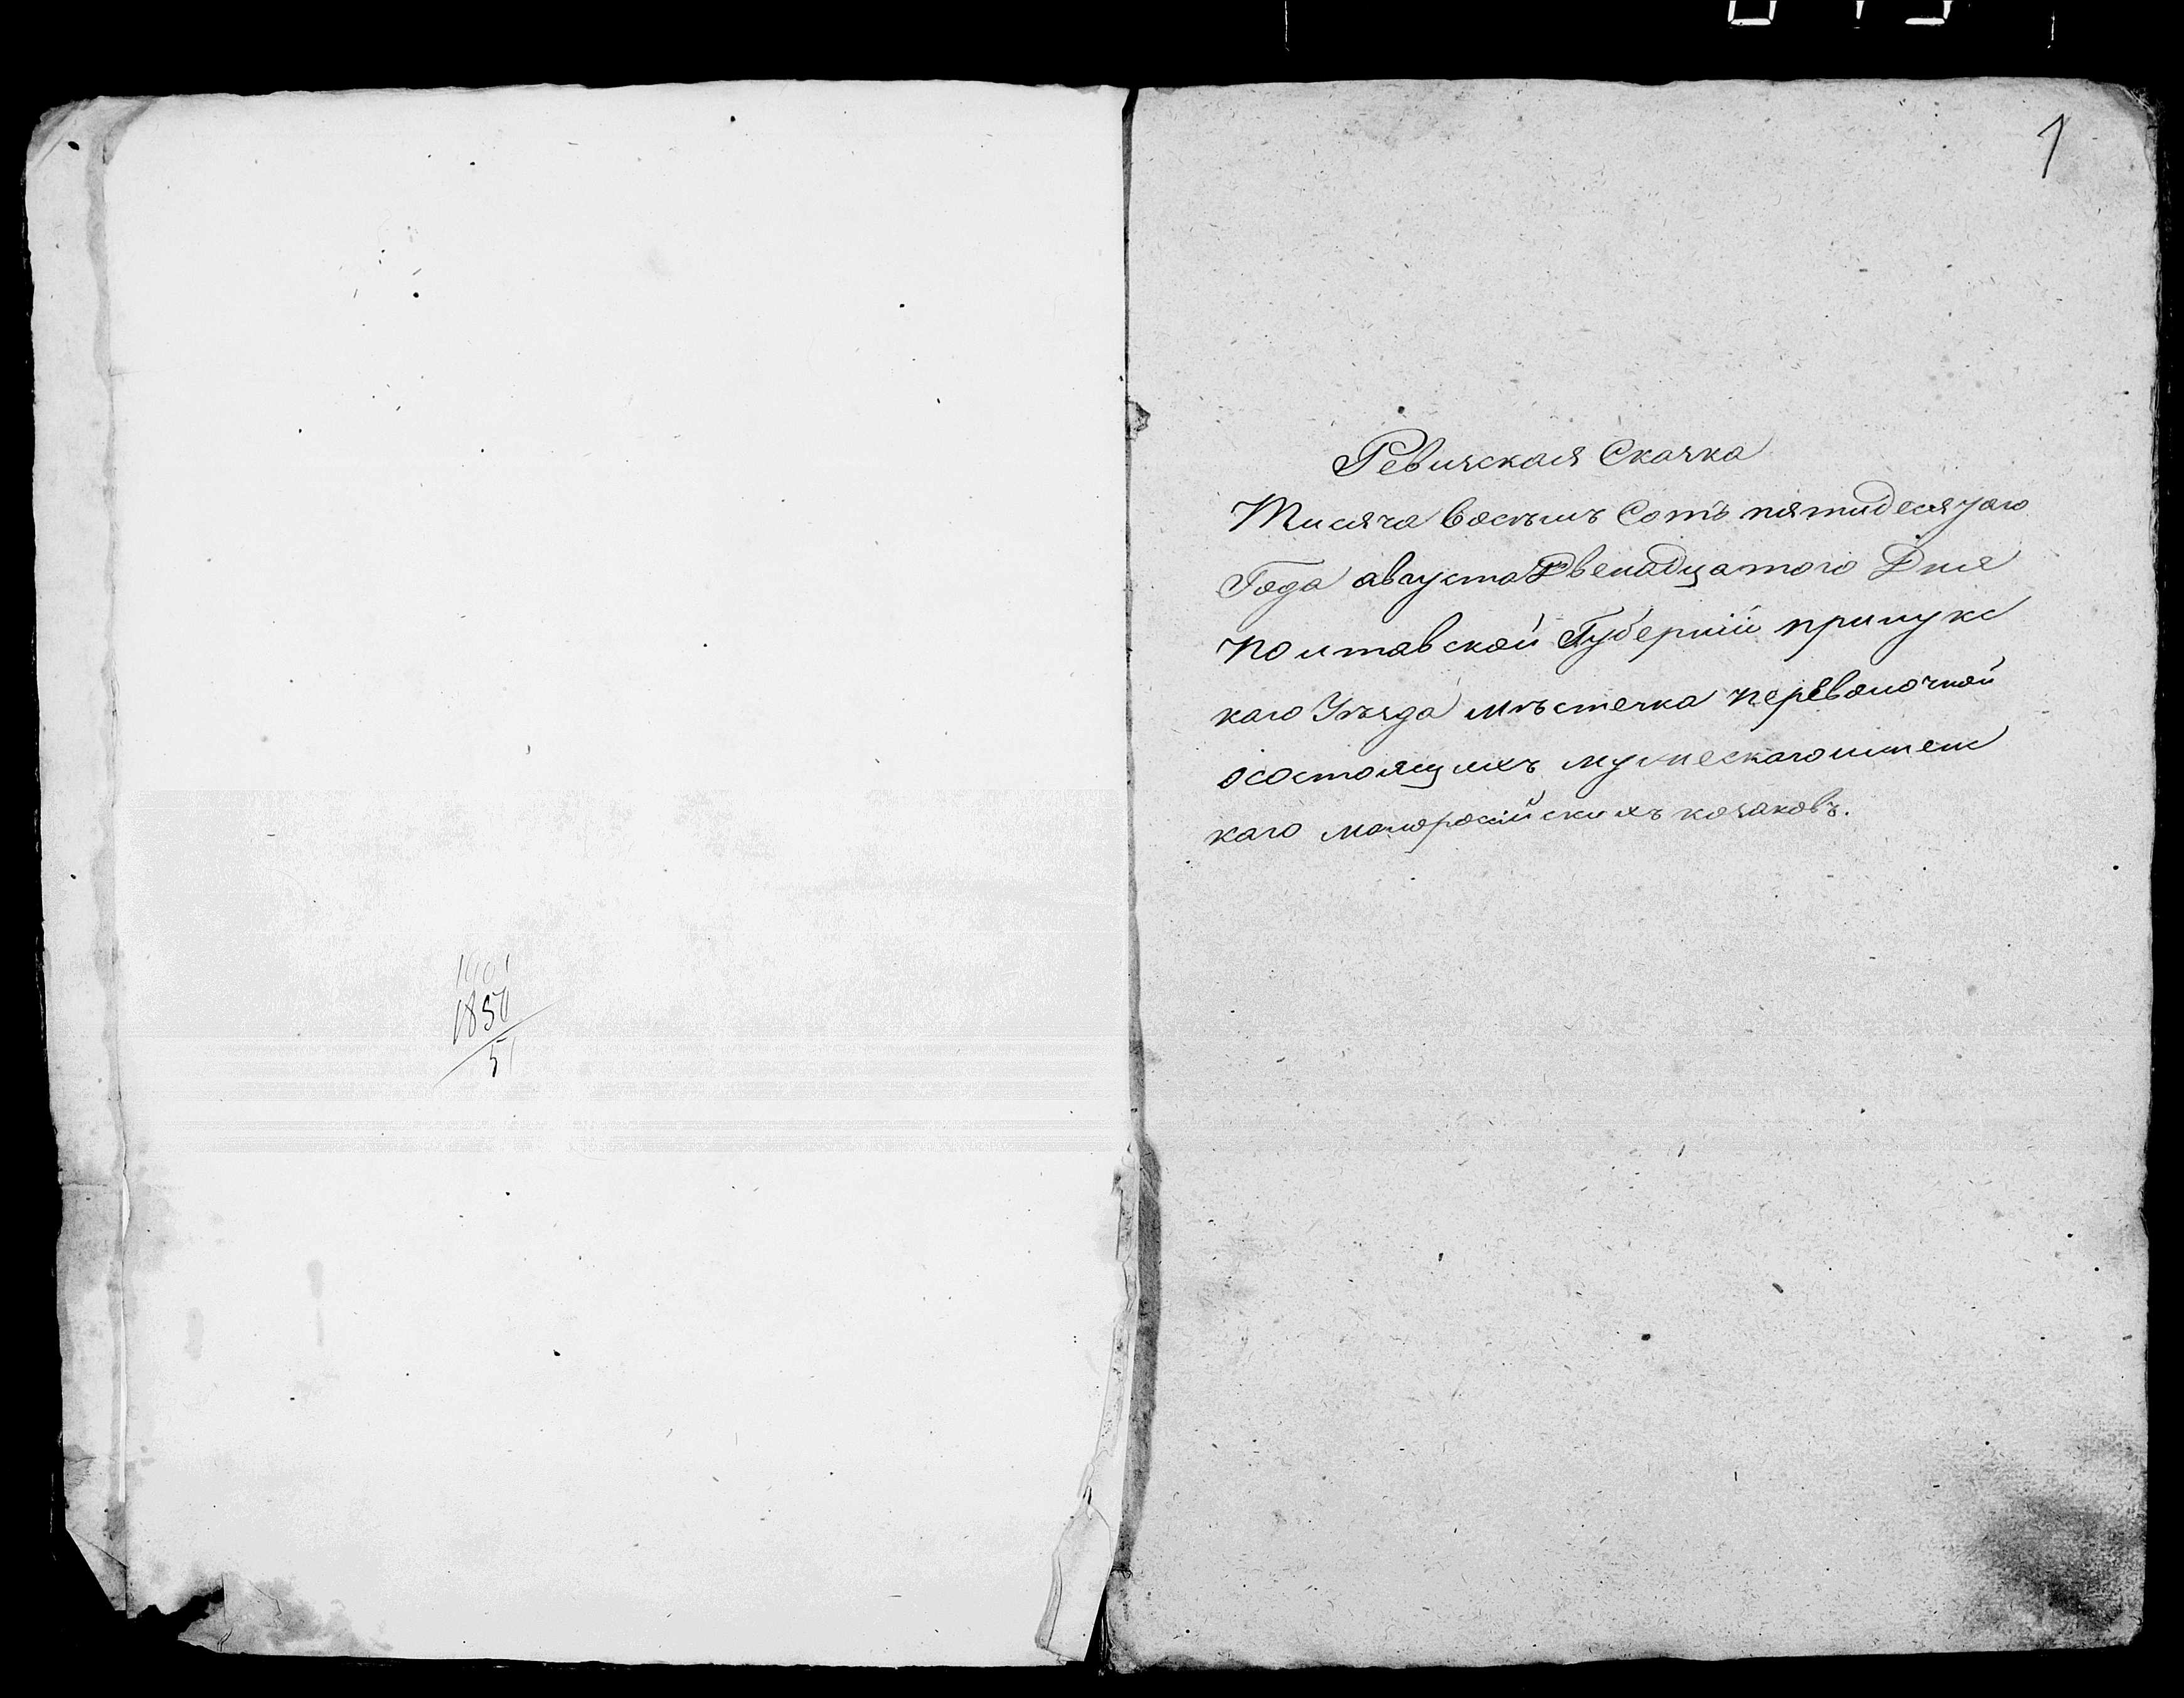 1
Ревизская Сказка
Тисяча восемь Сотъ пятидесятаго
Года августа Двенадцатого Дня
Полтавской Губерніи прилукс
каго Уѣзда мѣстечка переволочной
осостоящихъ мужескагоиженс
каго малоросійскихъ козаковъ.
1901
1850
51